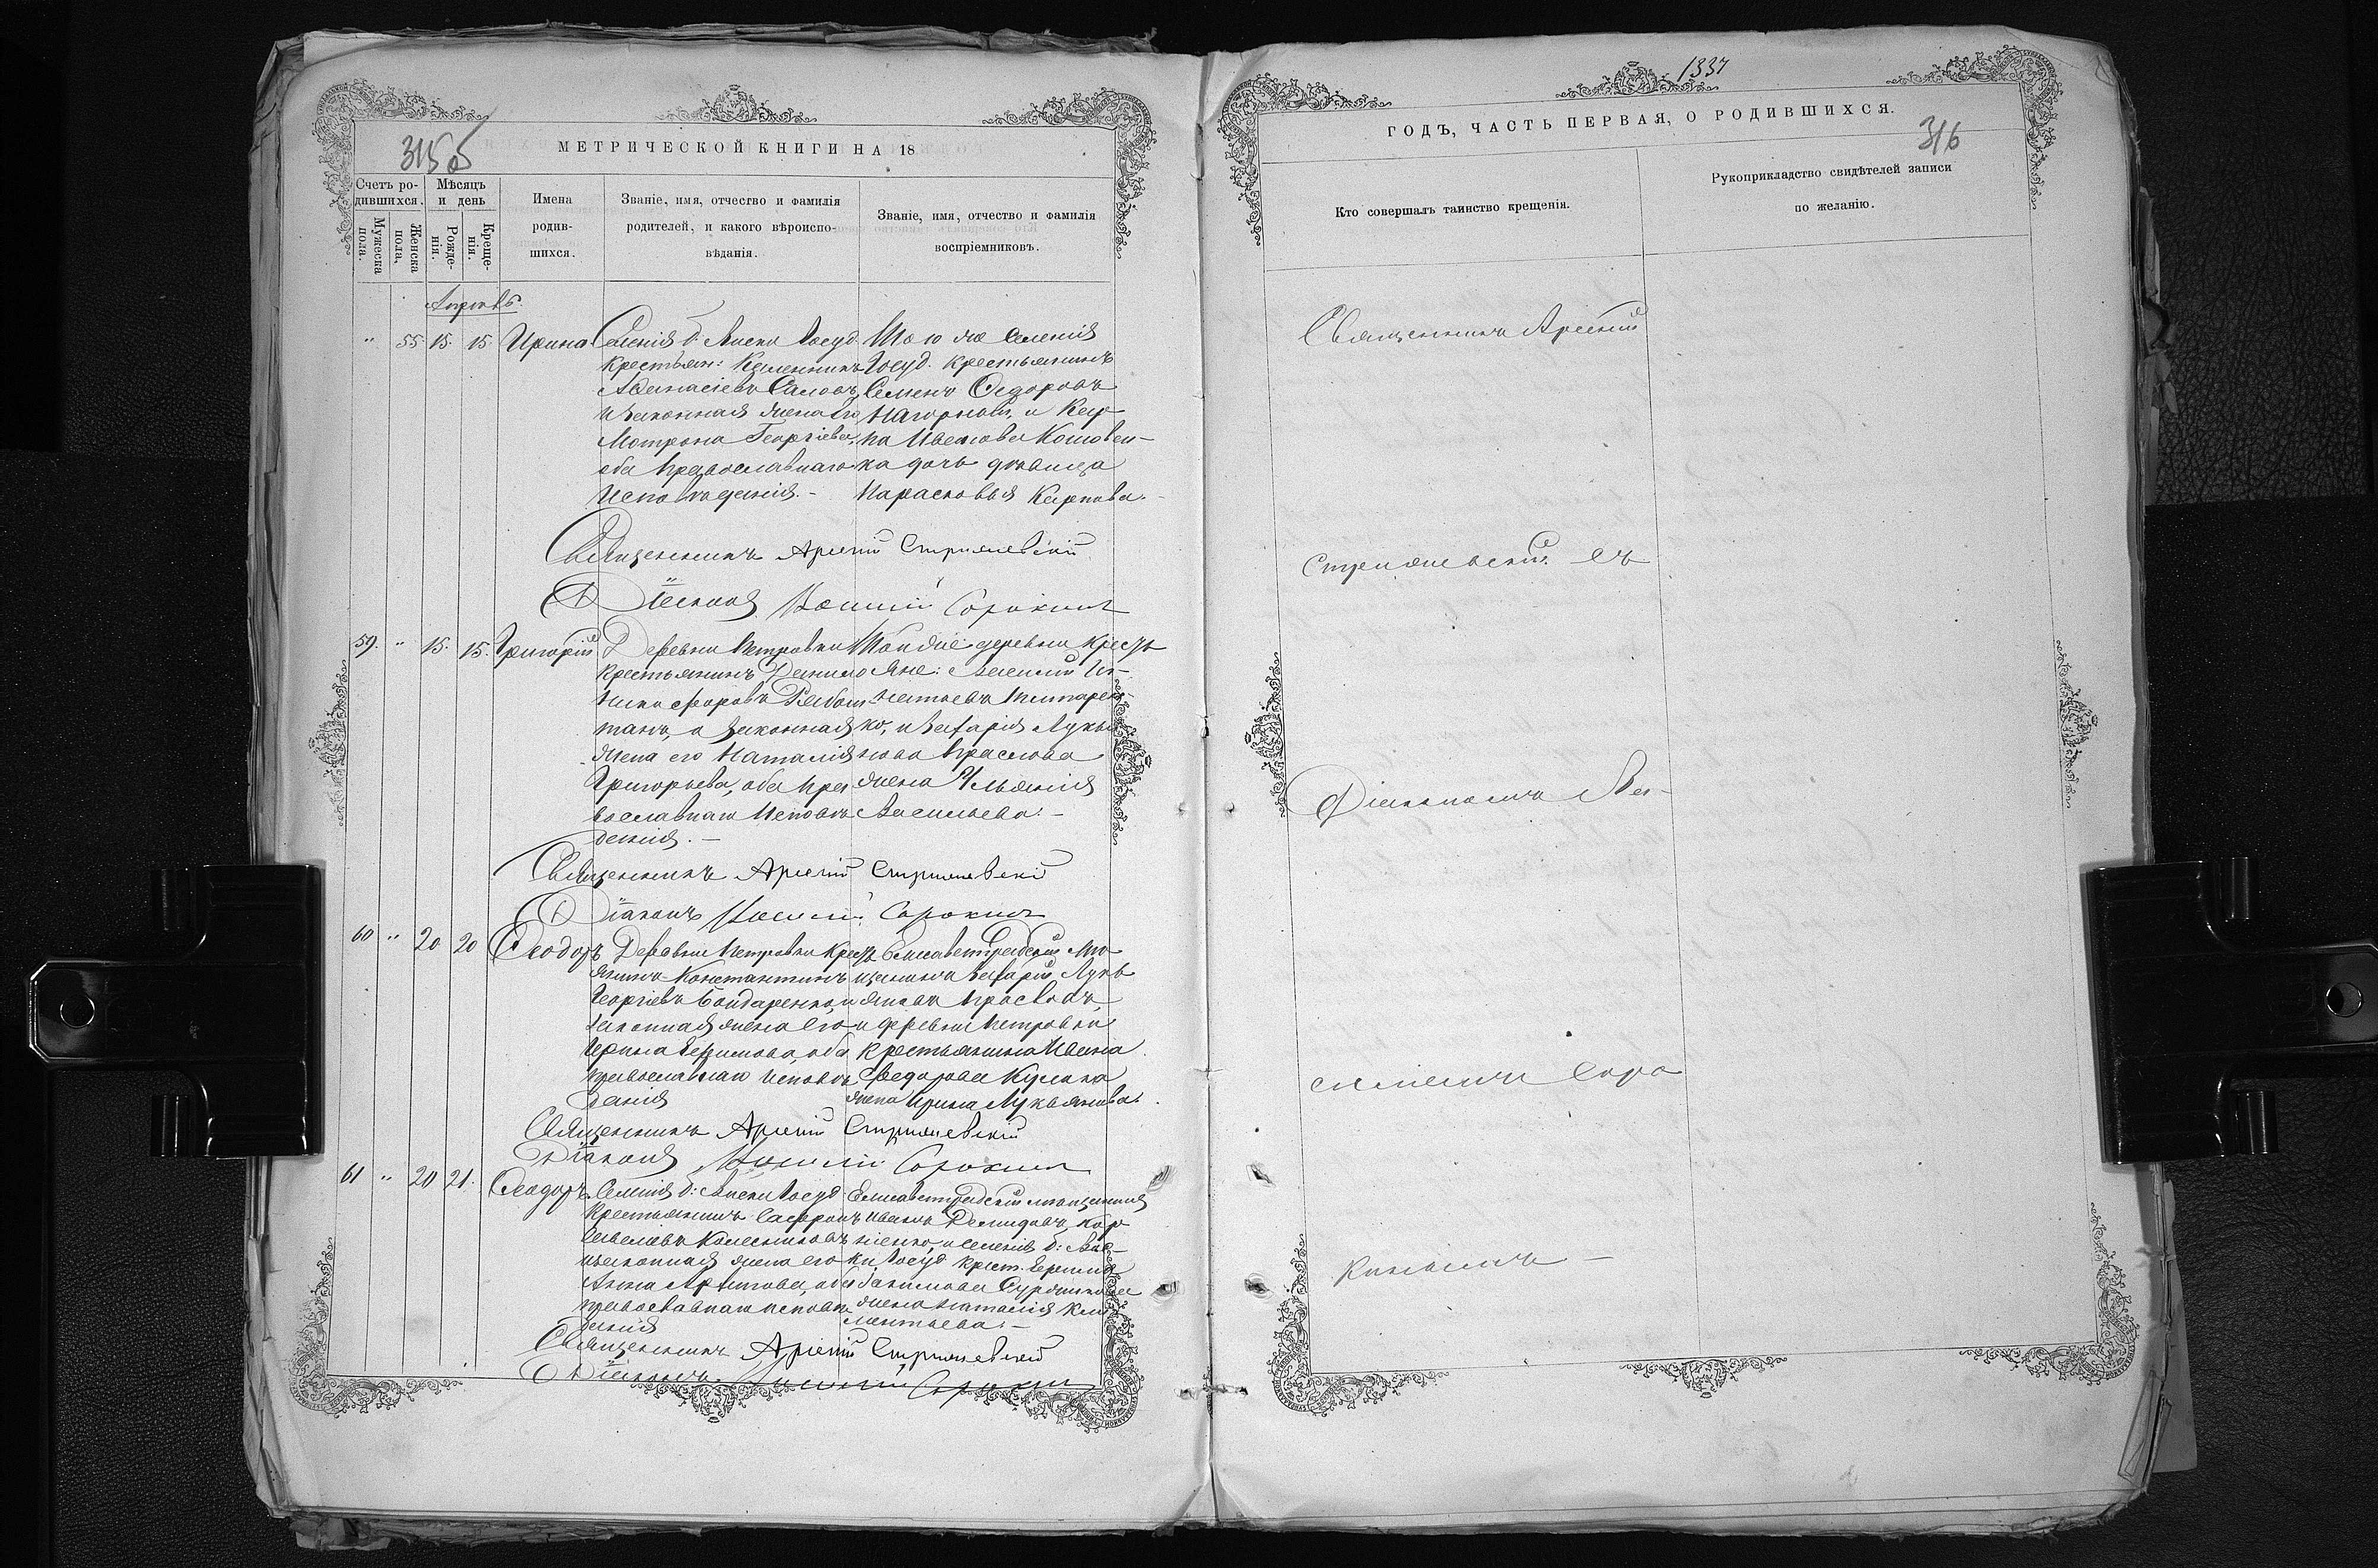 315 об
МЕТРИЧЕСКОЙ КНИГИ НА 18
Счетъ ро-
дившихся.
Мужеска
пола.
Женска
пола,
Мѣсяцъ
и день
Рожде-
нія.
Креще-
нія.
Имена
родив-
шихся.
Званіе, имя, отчество и фамилія
родителей, и какого вѣроиспо-
вѣданія.
Званіе, имя, отчество и фамилія
воспріемниковъ.
Апрель
" 55 15. 15. Ирина
Селенія б. Виски Госуд.
крестьян:
Афанасіевъ
и законная жена его
Мотрона Георгіева,
оба православнаго
исповѣданія. -
Того же селенія
Госуд. крестьянинъ
Семенъ Федоровъ
Нагорный, и Кар-
па Иванова
ка дочь дѣвица
Парасковья Карпова. -
Священникъ Арсеній Стрижевскій
Діаконъ Василій Сорокинъ
59. " 15. 15. Григорій
Деревни Петровки
крестьянинъ Данило
Никифоровъ
и законная
жена его Наталія
Григорьева, оба пра
вославнаго исповѣ
данія. -
Той же деревни крест
яне: Василій Иг-
натьевъ
ко, и Захарія Лукья
нова Краснова
жена Ульянія
Васильева. -
Священникъ Арсеній Стрижевскій
Діаконъ Василій Сорокинъ
60 " 20 20 Феодоръ
Деревни Петровки крест
янинъ Константинъ
Георгіевъ Бондаренко, и
законная жена его
Ирина Ефимова, оба
православнаго исповѣ
данія
Елисаветградскій мѣ-
щанинъ Захарій Лукь
яновъ
и деревни Петровки
крестьянина Ивана
Федорова
жена Ирина Лукьянова.
Священникъ Арсеній Стрижевскій
Діаконъ Василій Сорокинъ
61 " 20 21. Феодоръ
Селенія б: Виски Госуд
крестьянинъ Сафронъ
Савельевъ Колесниковъ
и законная жена его
Анна Архипова, оба
православнаго исповѣ
данія
Елисаветградскій мѣщанинъ
Иванъ Демидовъ
и селенія б: Вис-
ки Госуд крест.
жена Наталія Кли
ментьева. -
Священникъ Арсеній Стрижевскій
Діаконъ Василій Сорокинъ
1337
ГОДЪ, ЧАСТЬ ПЕРВАЯ, О РОДИВШИХСЯ.
316
Кто совершалъ таинство крещенія.
Рукоприкладство свидѣтелей записи
по желанію.
Священникъ Арсеній
Стрижевскій съ
Діакономъ Ва-
силіемъ Соро
кинымъ -